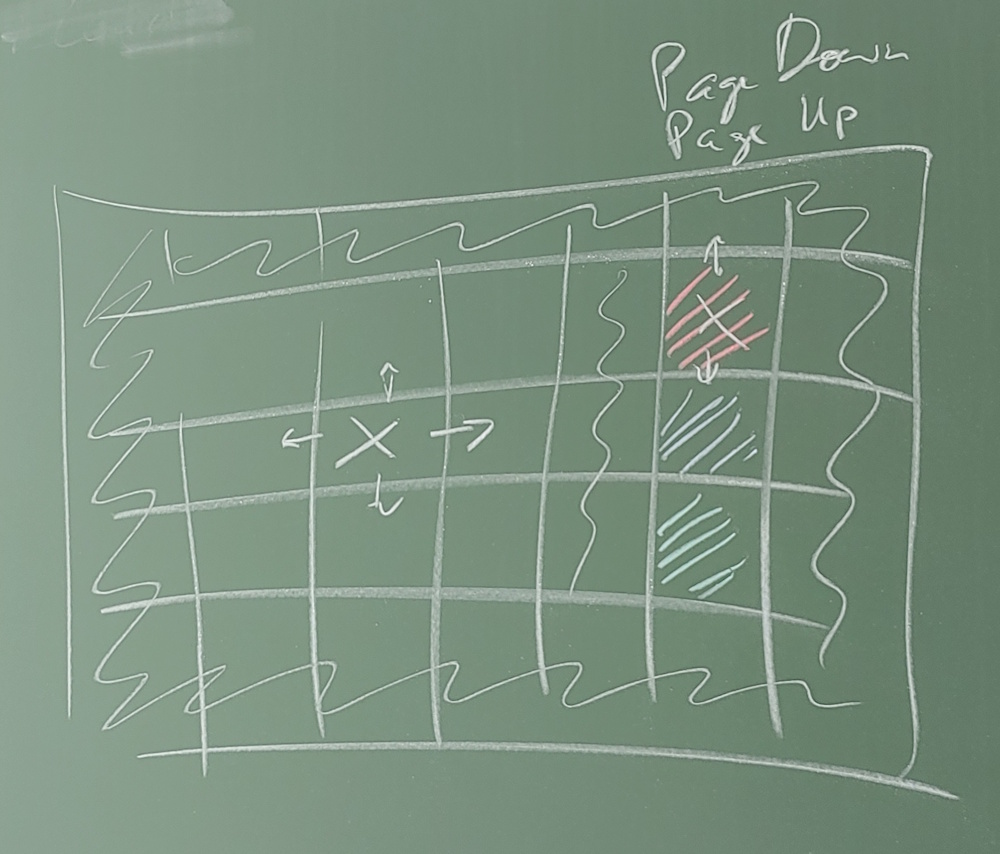 Page Down
Page Up
X
X